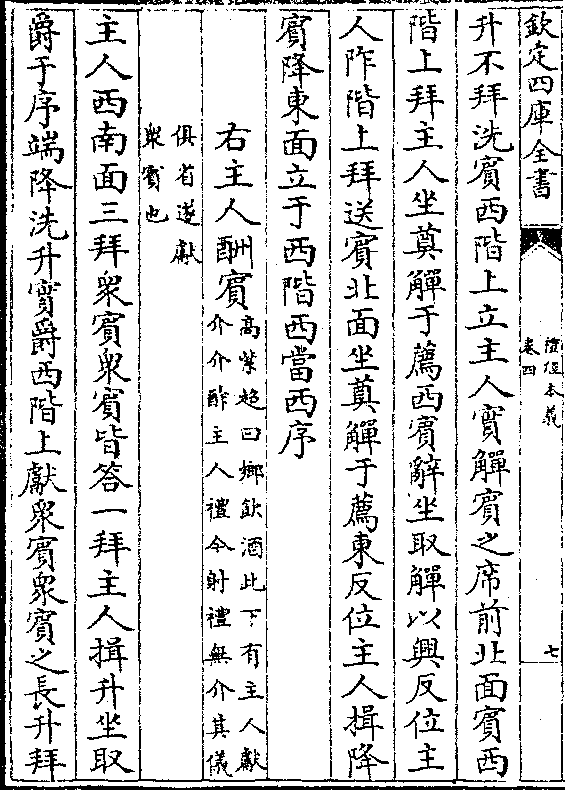 欽定四庫全書
禮經本義
卷四
七
升不拜洗賓西階上立主人實觶賓之席前北面賓西
階上拜主人坐奠觶于薦西賓辭坐取觶以興反位主
人阼階上拜送賓北面坐奠觶于薦東反位主人揖降
賓降東面立于西階西當西序
右主人酬賓
高紫超曰鄉飲酒此下有主人獻
介介酢主人禮今射禮無介其儀
俱省遂獻
衆賓也
主人西南面三拜衆賓衆賓皆答一拜主人揖升坐取
爵于序端降洗升實爵西階上獻衆賓衆賓之長升拜